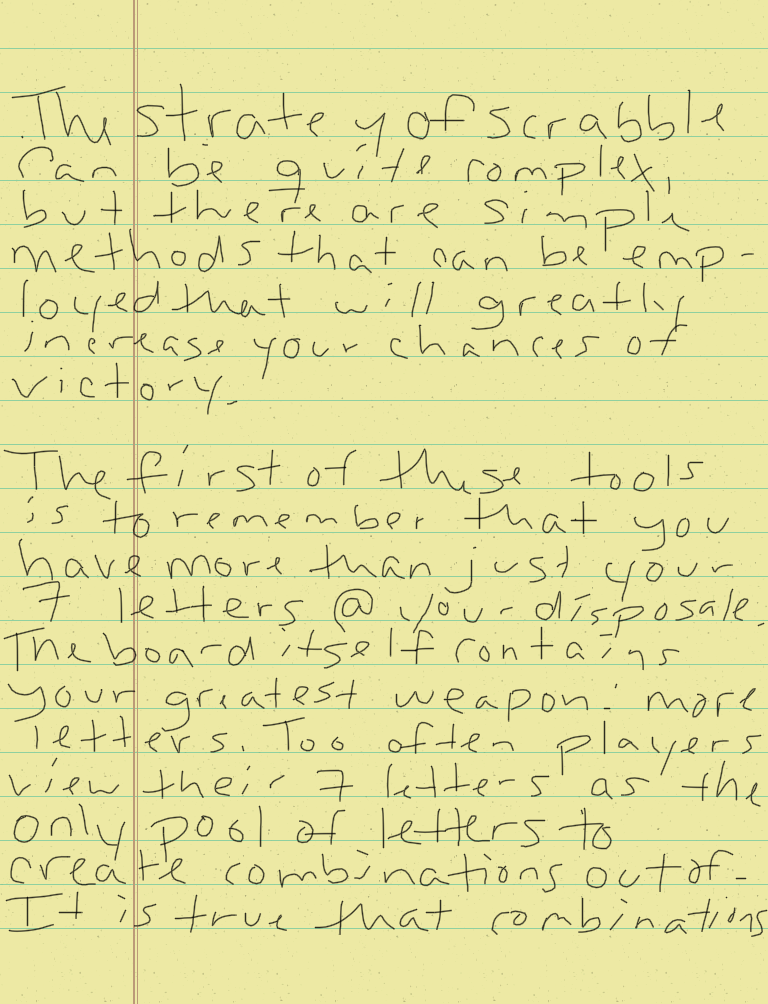 The stratey of scrabble
can be quite complex,
but there are simple
methods that can be emp-
loyed that will greatly
increase your chances of
victory.
The first of these tools
is to remember that you
have more than just your
7 letters @ your disposale.
The board itself contains
your greatest weapon: more
letters. Too often players
view their 7 letters as the
only pool of letters to
create combinations out of.
It is true that combinations